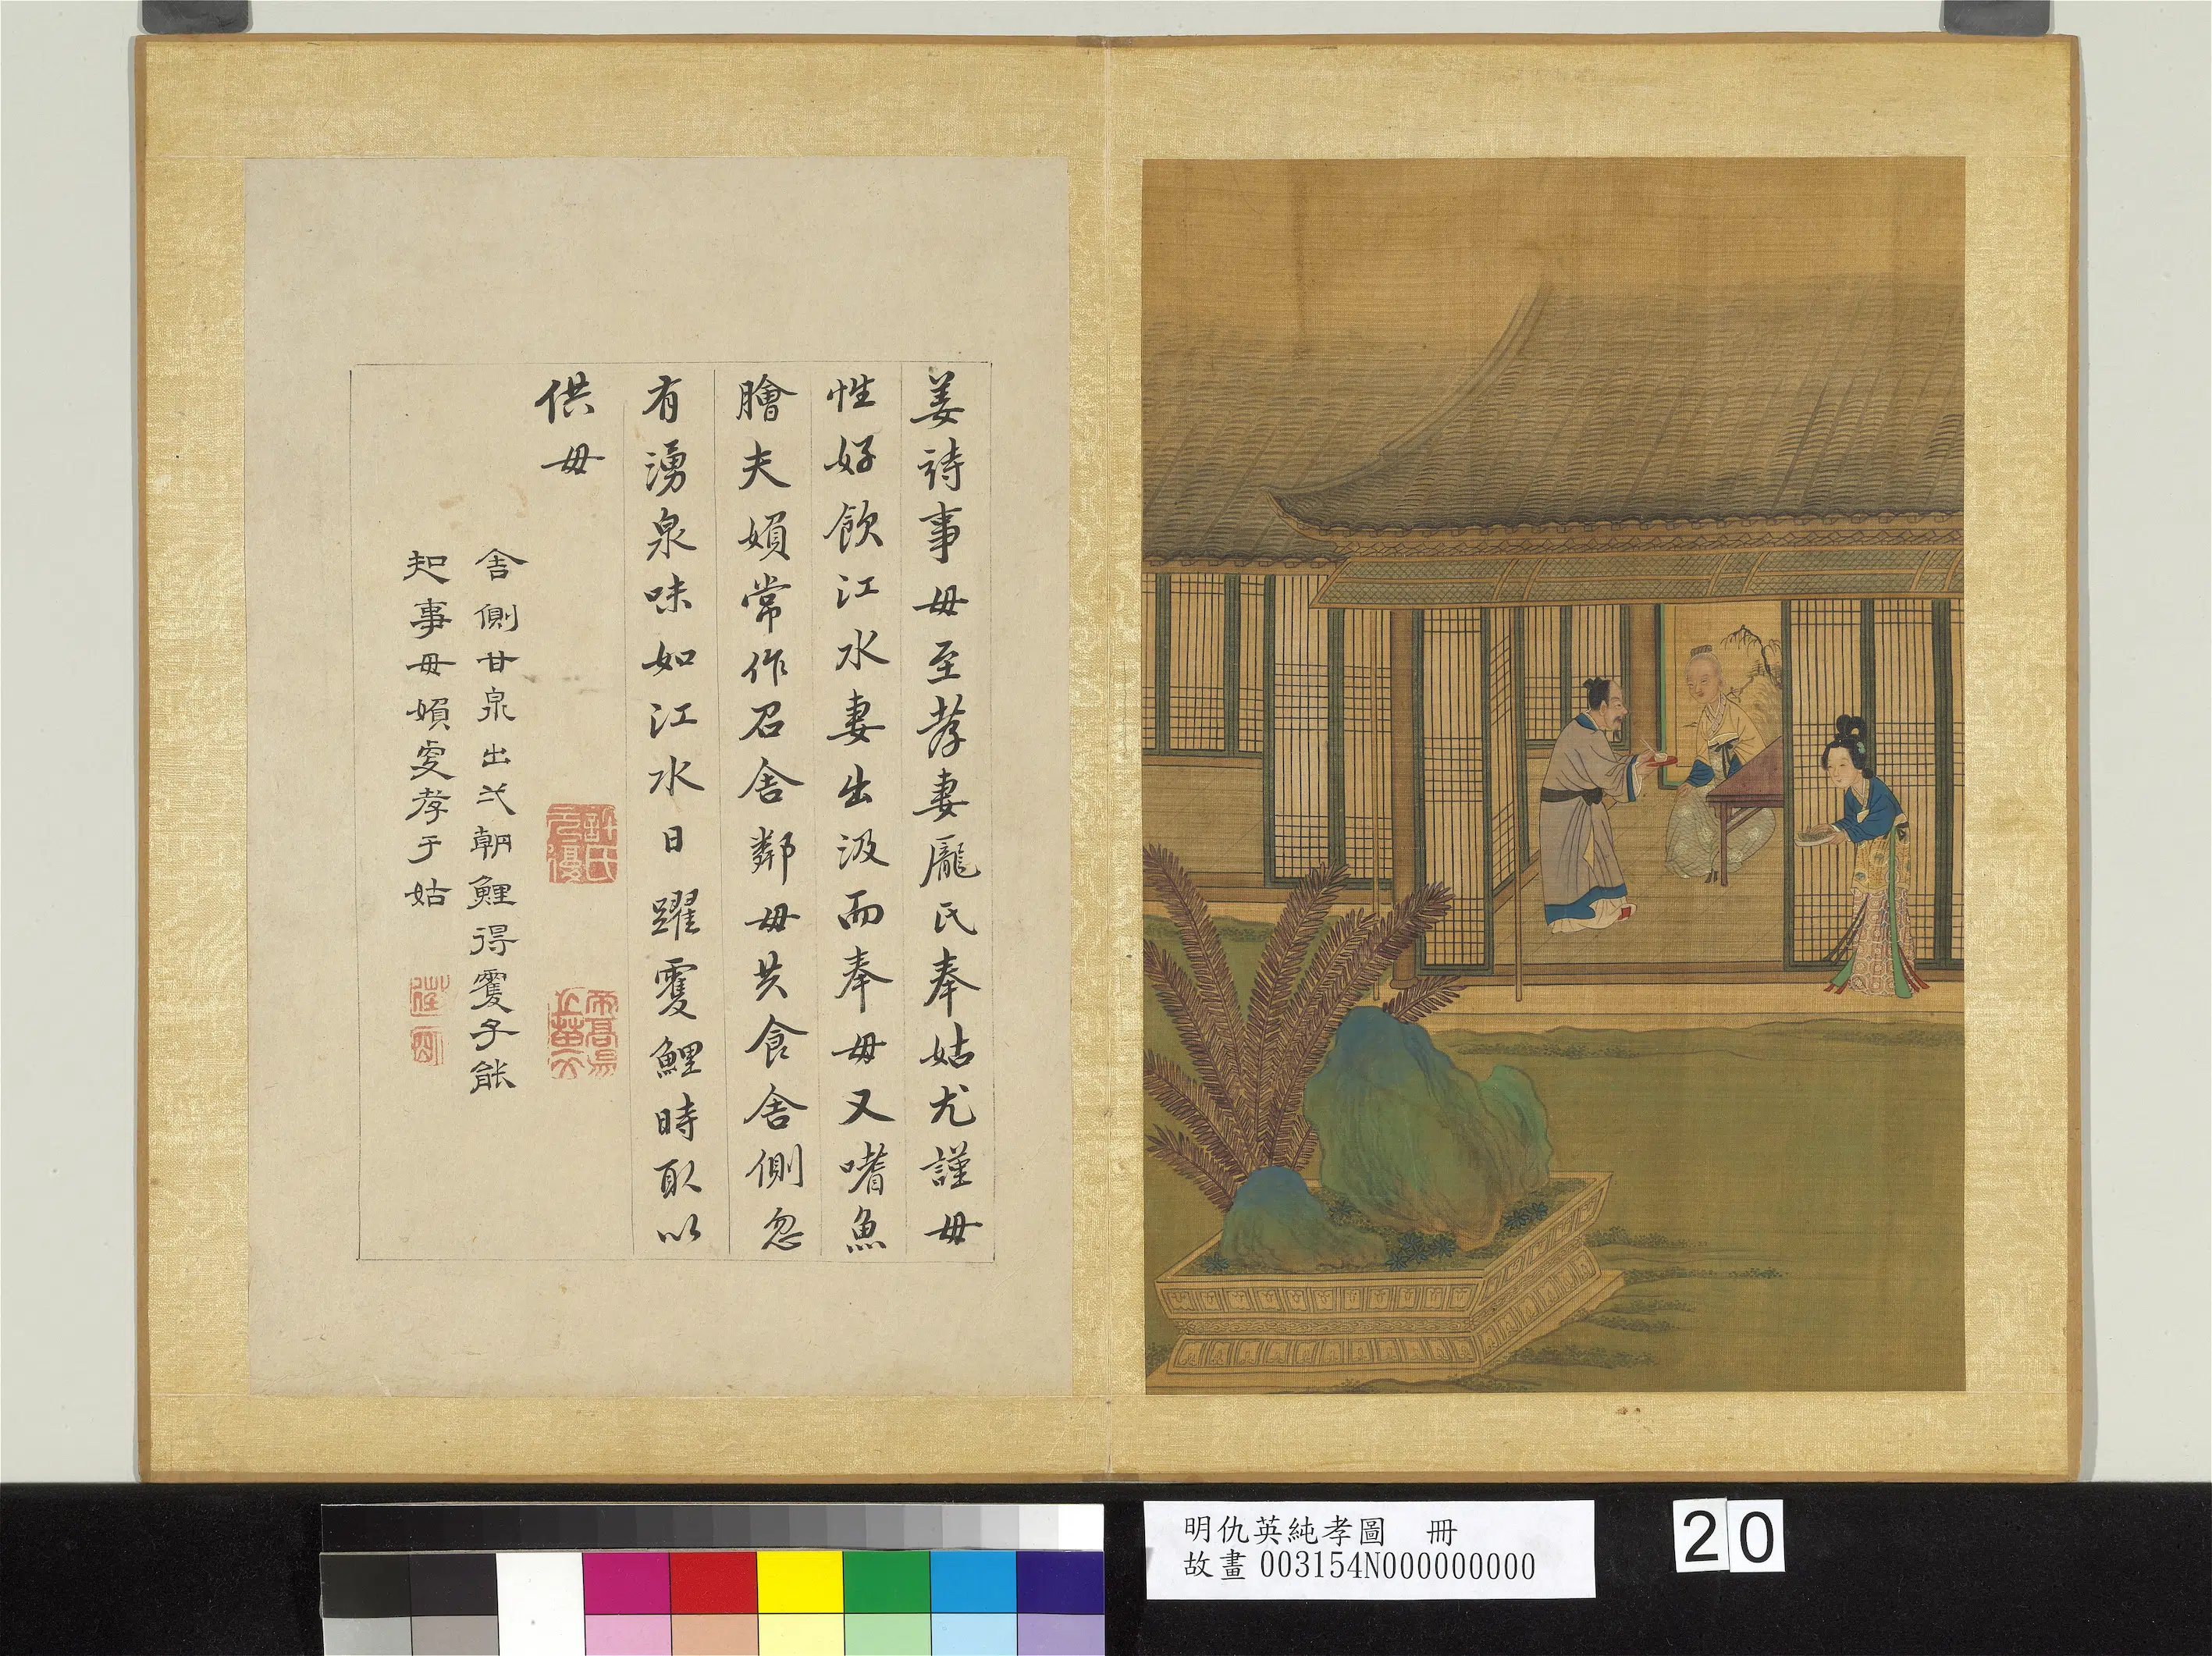 姜詩事母至孝妻龐氏奉姑尤謹母
性好飲江水妻出汲而奉母又嗜魚
膾夫婦常作召舍鄰母共食舍側忽
有湧泉味如江水日躍雙鯉時取以
供母
舍側甘泉出弍朝鯉得雙子能
知事母婦更孝于姑
明仇英純孝圖 冊
故畫003154N000000000
20